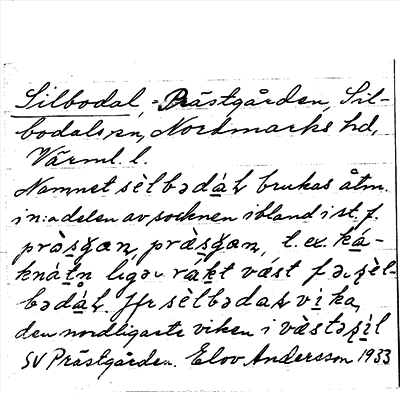 Silbodal, = Prästgården, Sil-
bodals sn, Nordmarks hd,
Värml. l.
Namnet sèlbədáɫ brukas åtm.
i n:a delen av socknen ibland i st. f.
pròs̱gæn, pràs̱gæn, t. ex. ká-
knátn ligər rákt vást fə ʂèl-
bədáɫ. Jfr sèlbədas vika,
den nordligaste viken i vàstəʂil
SV Prästgården. Elov Andersson 1933